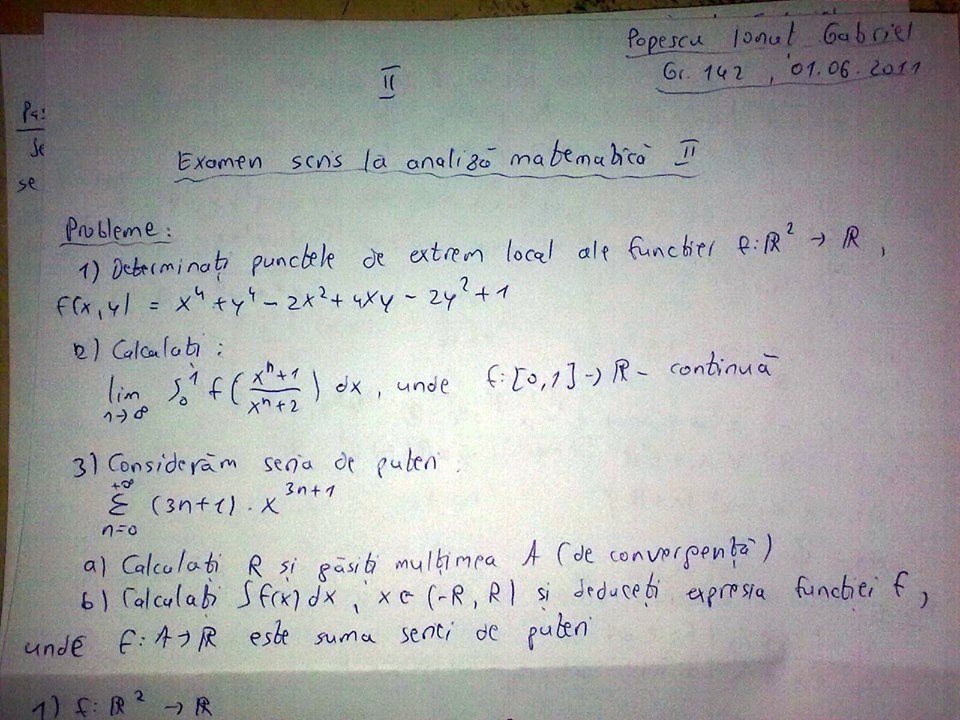 Popescu Ionuț Gabriel
Gr. 142, 01.06.2011
II
Examen scris la analiză matematică II
se
Probleme:
1) Determinați punctele de extrem local ale funcției f: ℝ² → ℝ,
f(x,y) = x⁴ + y⁴ - 2x² + 4xy - 2y² + 1
2) Calculați:
lim n→∞ ∫₀¹ f((xⁿ+1)/(xⁿ+2)) dx, unde f: [0,1] → ℝ - continuă
3) Considerăm seria de puteri:
Σ n=0 +∞ (3n+1) · x³ⁿ⁺¹
a) Calculați R și găsiți mulțimea A (de convergență)
b) Calculați ∫f(x)dx, x∈(-R, R) și deduceți expresia funcției f,
unde f: A → ℝ este suma seriei de puteri
1) f: ℝ² → ℝ